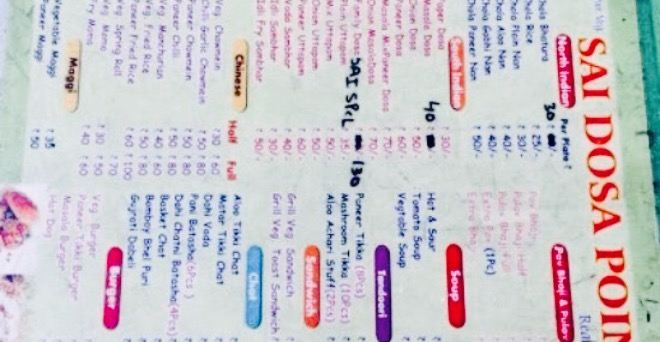 SAI DOSA POIN
North Indian Per Plate ₹
Chola Bhatura 30
Chola Rice ₹ 25/-
Chola Plain Nan ₹ 30/-
Chola Aloo Nan ₹ 40/-
Chola Gobhi Nan ₹ 40/-
Chola Paneer Nan ₹ 50/-
South Indian
Paper Dosa ₹ 30/-
Masala Dosa ₹ 40
Onion Dosa ₹ 50/-
Paneer Dosa ₹ 60/-
Masala M.Paneer Dosa ₹ 70/-
Onion MasalaDosa ₹ 70/-
Family Dosa SAI SPCL 130
Plain Uttpam ₹ 35/-
M. Uttpam ₹ 50/-
Onion Uttpam ₹ 50/-
Paneer Uttpam ₹ 60/-
Vada Sambhar ₹ 40/-
Idli Sambhar ₹ 30/-
Idli Fry Sambhar ₹ 50/-
Chinese Half Full
Veg Chowmein ₹ 30 ₹ 60
Chilli Garlic Chowmein ₹ 50 ₹ 80
Paneer Chowmein ₹ 50 ₹ 80
Paneer Chilli ₹ 50
Veg. Manchurian ₹ 40 ₹ 80
Veg. Fried Rice ₹ 40
Paneer Fried Rice ₹ 60 ₹ 100
Veg Spring Roll ₹ 70
Veg. Momo ₹ 30 ₹ 50
Fry Momo ₹ 40 ₹ 60
Maggi
Vegetable Maggi ₹ 35
Paneer Maggi ₹ 50
Pav Bhaji & Pulav
Pav Bhaji
Pulav Bhaji Half
Pulav Bhaji Full
Extra Pav (1Pc)
Extra Bhaji
Soup
Hot & Sour
Tomato Soup
Vegtable Soup
Tandoori
Paneer Tikka (8Pcs)
Mashroom Tikka (10Pcs)
Aloo Achar Stuff (2Pcs)
Sandwich
Grill Veg Sandwich
Grill Veg. Toast Sandwich
Chat
Aloo Tikki Chat
Matar Tikki Chat
Dahi Vada
Pani Batasha(6Pcs)
Dahi Chatni Batasha(4Pcs)
Basket Chat
Bombay Bhel Puri
Gujrati Dabeli
Burger
Veg. Burger
Paneer Tikki Burger
Masala Burger
Hot Dog